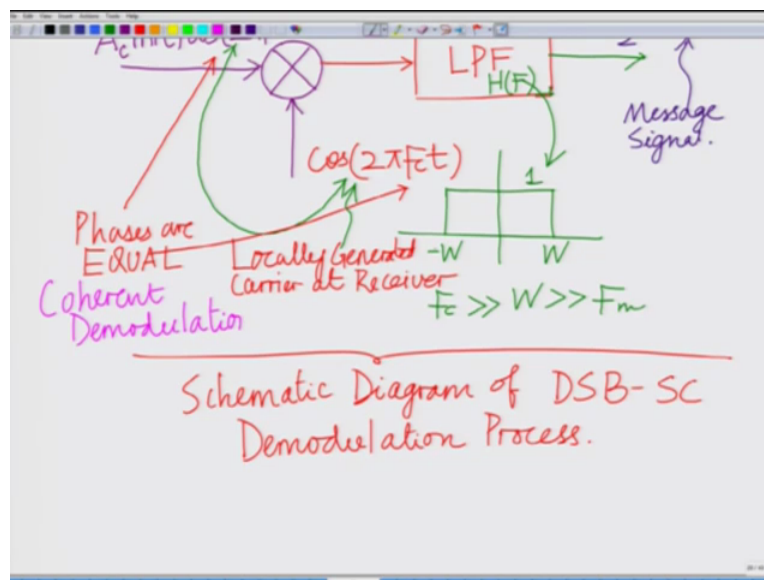 LPF
H(F)
2
Message
Signal.
cos(2πFct)
1
-W
W
Phases are
EQUAL
Locally Generated
Carrier at Receiver
Coherent
Demodulation
Fc >> W >> Fm
Schematic Diagram of DSB-SC
Demodulation Process.